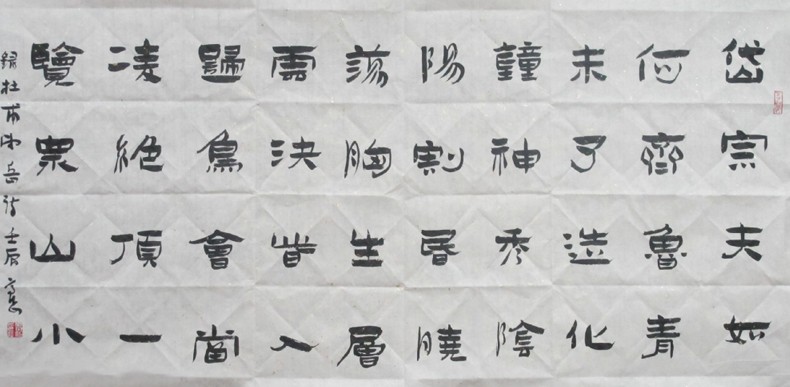 岱宗夫如
何齊魯青
未了造化
鐘神秀陰
陽割昏曉
蕩胸生層
雲決眥入
歸鳥會當
凌絕頂一
覽眾山小
錄杜甫望岳诗壬辰